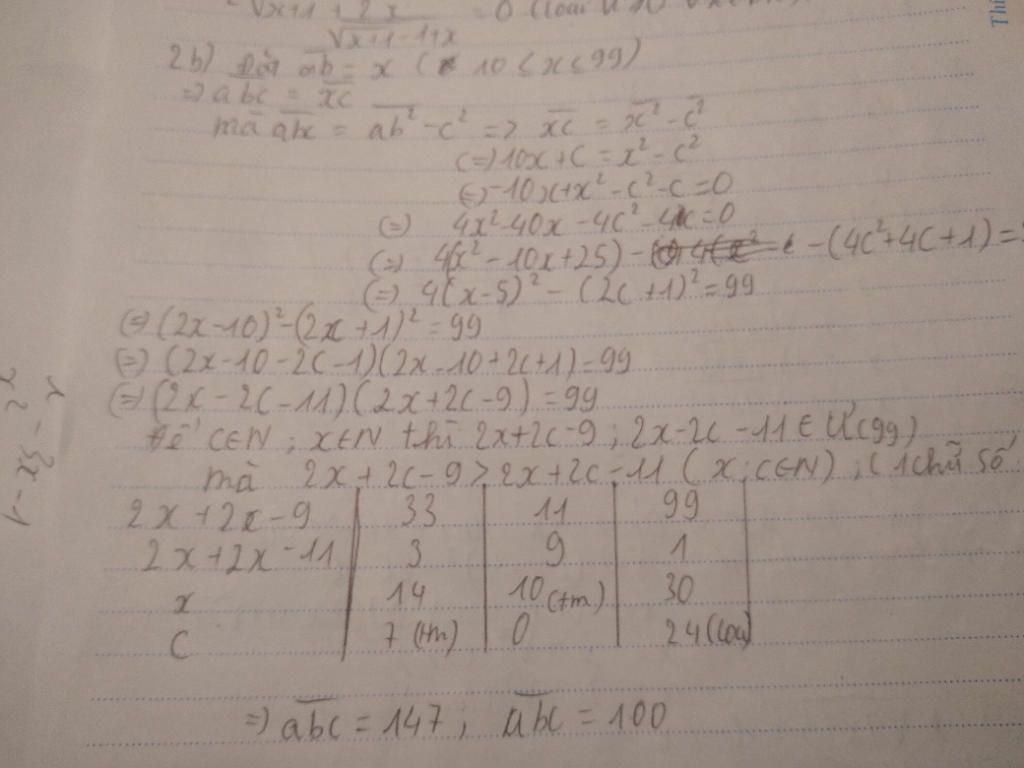 √x+1 + 2x = 0 (loại
√x+1-1+x
2b) Đặt ab = x ( 10 ≤ x ≤ 99)
=> abc = xc
mà abc = ab² - c² => xc = x² - c²
(=) 10x + c = x² - c²
(=) -10x + x² - c² - c = 0
(=) 4x² - 40x - 4c² - 4c = 0
(=) 4(x² - 10x + 25) - (4c² + 4c + 1) =
(=) 4(x-5)² - (2c+1)² = 99
(=) (2x-10)² - (2x+1)² = 99
(=) (2x-10-2c-1)(2x-10+2c+1) = 99
(=) (2x-2c-11)(2x+2c-9) = 99
Để c∈N ; x∈N thì 2x+2c-9 ; 2x-2c-11 ∈ Ư(99)
mà 2x+2c-9 > 2x+2c-11 (x;c∈N) ; (1 chữ số
2x+2x-9 33 11 99
2x+2x-11 3 9 1
x 14 10 (tm) 30
C 7 (tm) 0 24 (loại)
=> abc = 147 ; abc = 100